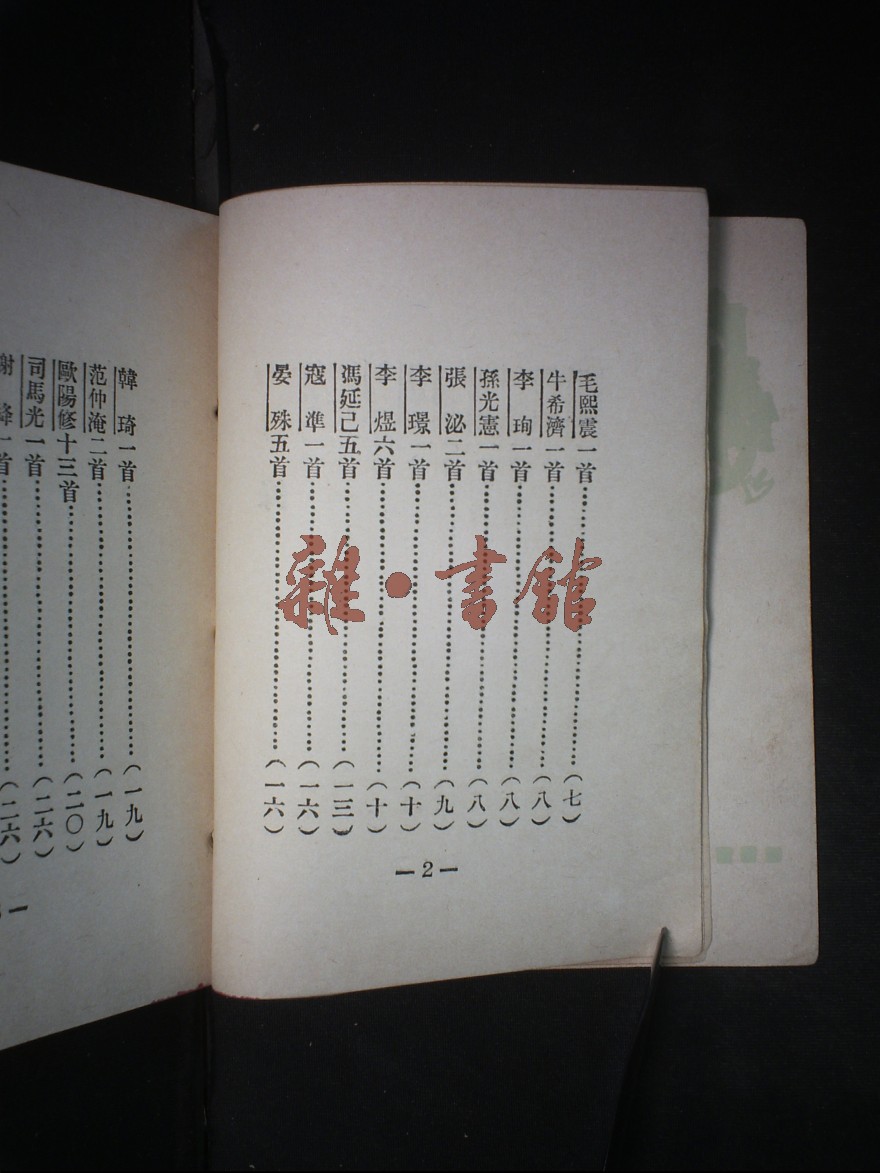 毛熙震一首……(七)
牛希濟一首……(八)
李珣一首……(八)
孫光憲一首……(八)
張泌二首……(九)
李璟一首……(十)
李煜六首……(十)
馮延己五首……(一三)
寇準一首……(一六)
晏殊五首……(一六)
—2—
韓琦一首……(一九)
范仲淹二首……(一九)
歐陽修十三首……(二〇)
司馬光一首……(二六)
一首……(二六)
雜·書館